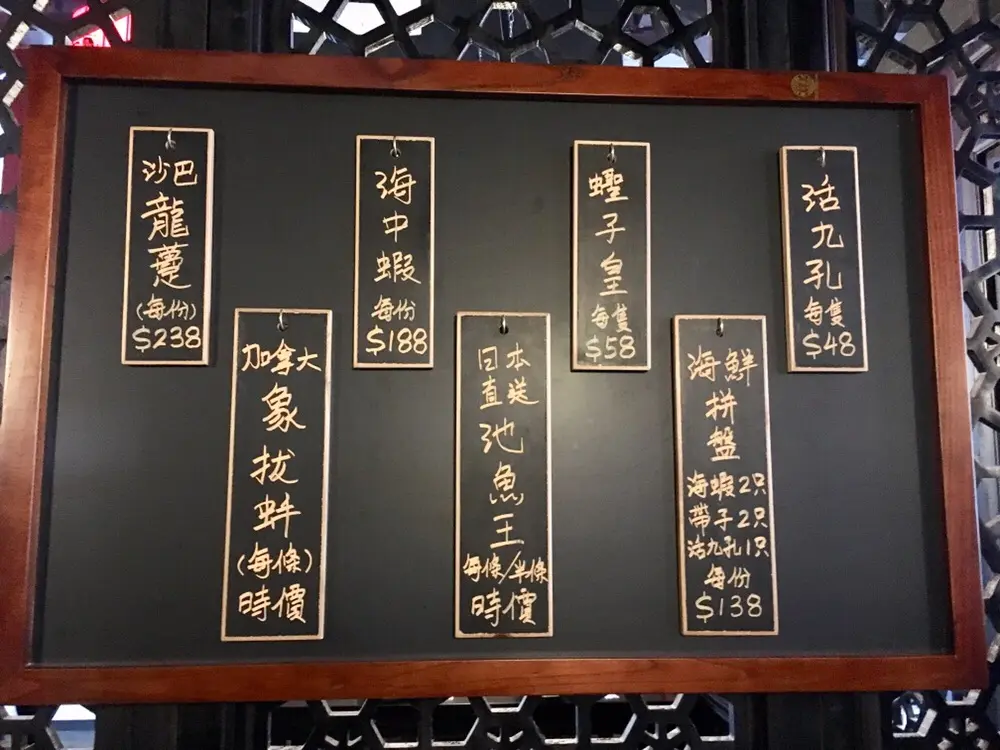 沙巴
龍躉
(每份)
$238
加拿大
象拔蚌
(每條)
時價
海中蝦
每份
$188
日本
直送
池魚王
每條/半條
時價
蟶子皇
每隻
$58
海鮮
拼盤
海蝦2只
帶子2只
活九孔1只
每份
$138
活九孔
每隻
$48